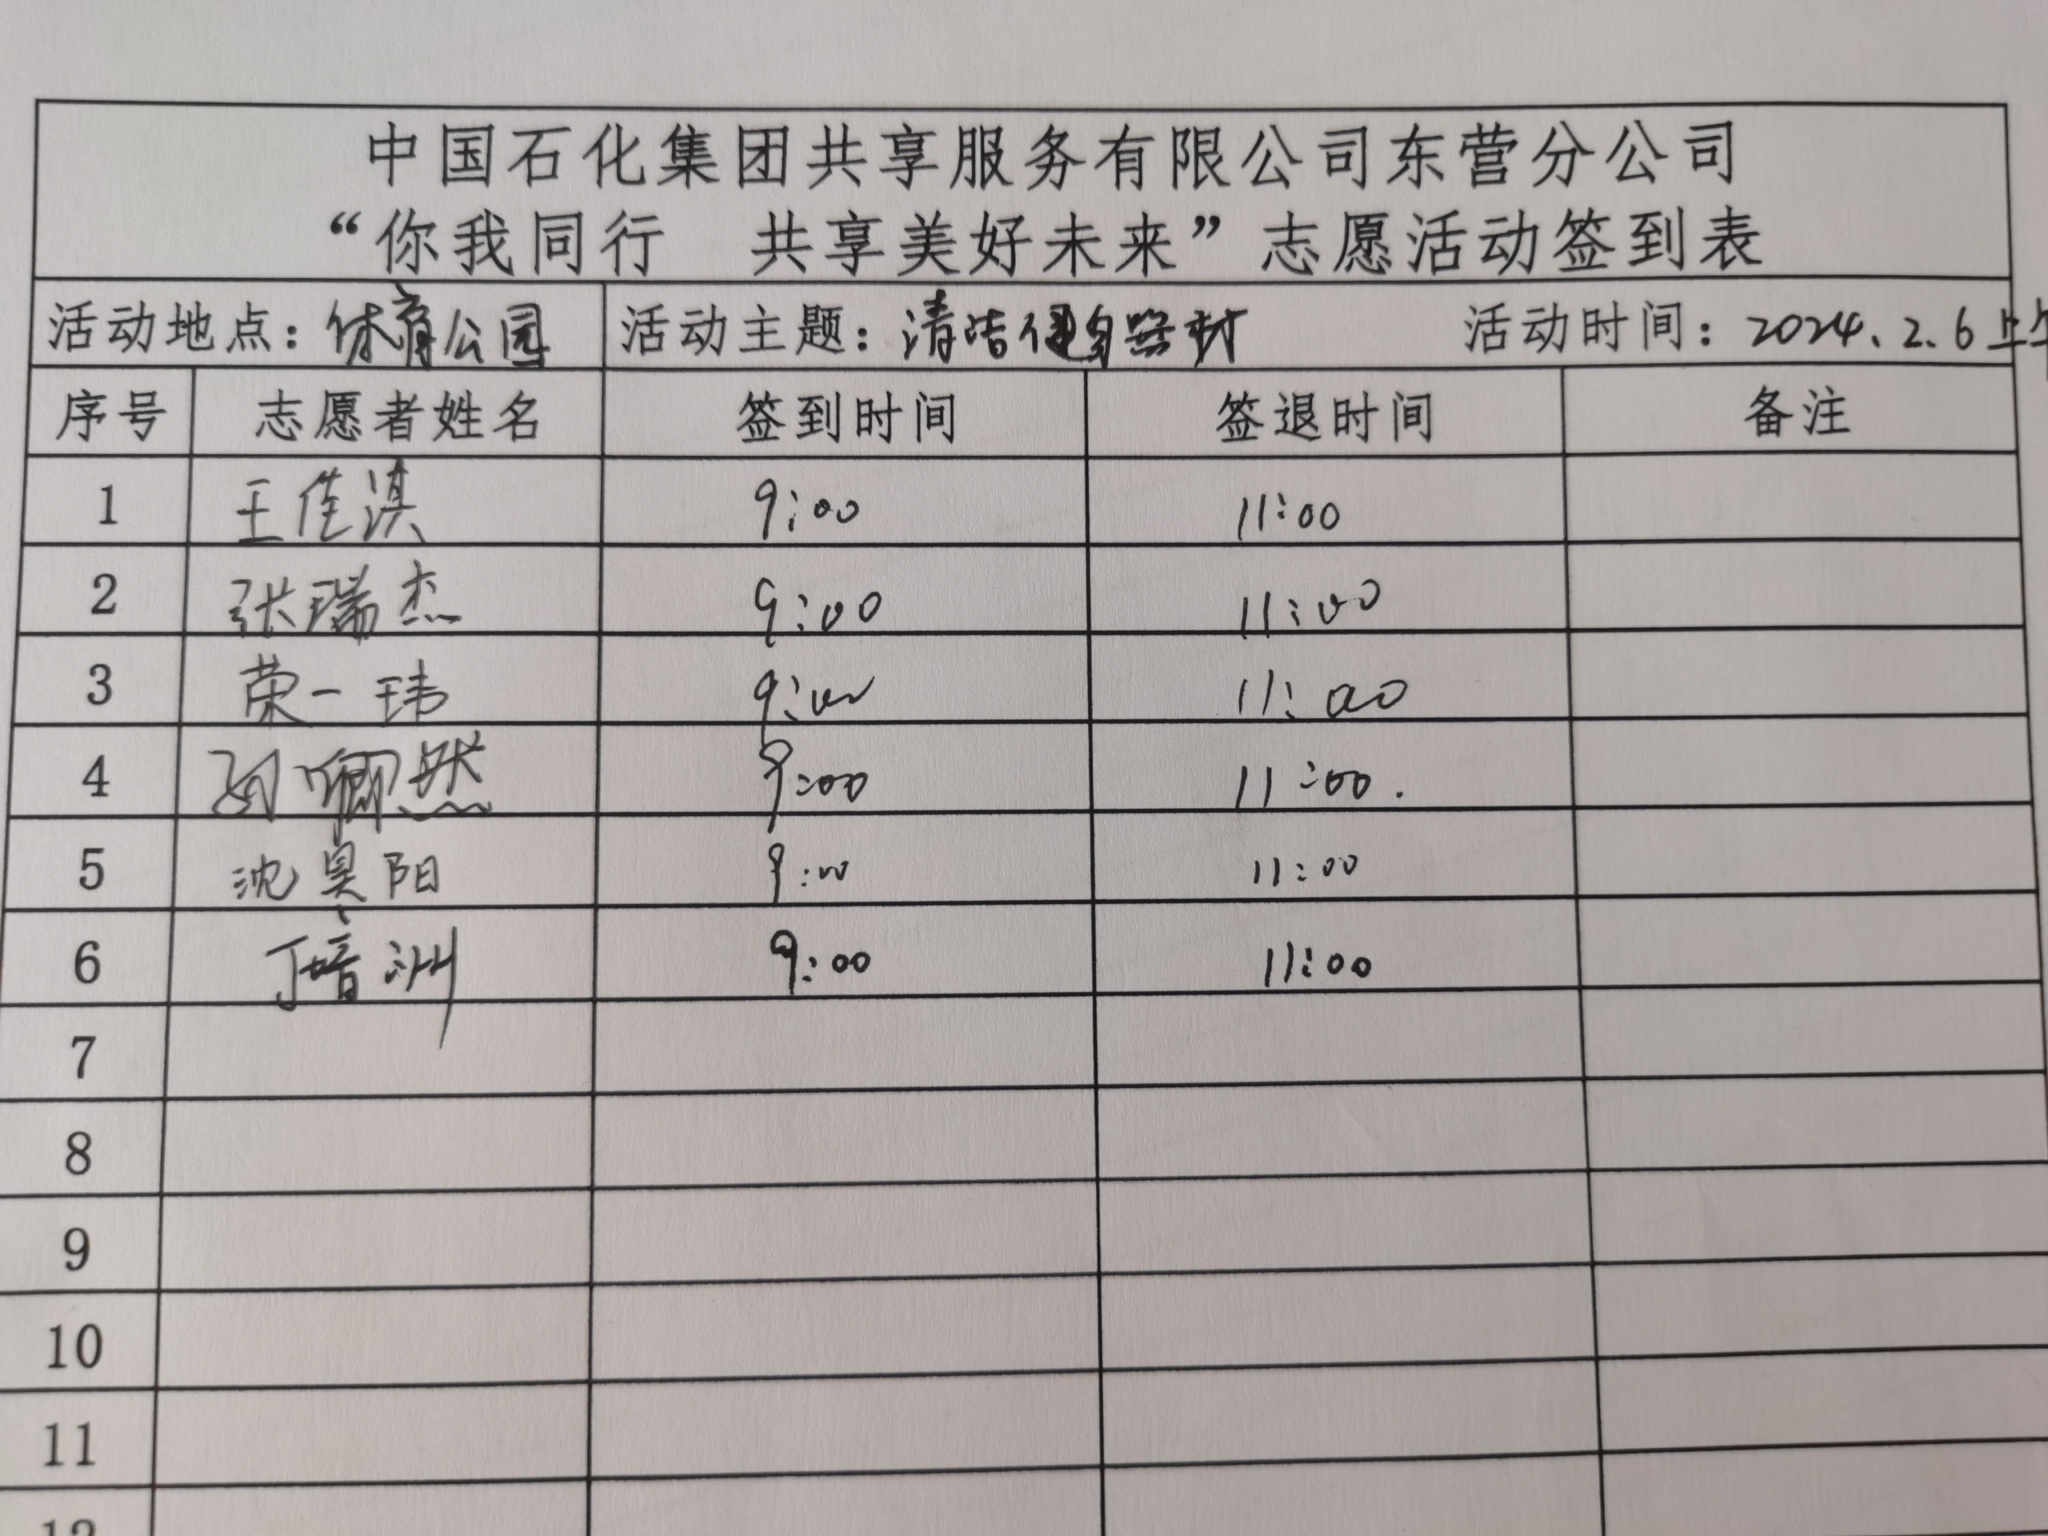 中国石化集团共享服务有限公司东营分公司
“你我同行 共享美好未来”志愿活动签到表
活动地点：体育公园 活动主题：清洁健身器材 活动时间：2024.2.6上午
序号 志愿者姓名 签到时间 签退时间 备注
1 王佳淇 9:00 11:00
2 张瑞杰 9:00 11:00
3 荣一玮 9:00 11:00
4 9:00 11:00.
5 沈昊阳 9:00 11:00
6 9:00 11:00
7
8
9
10
11
12